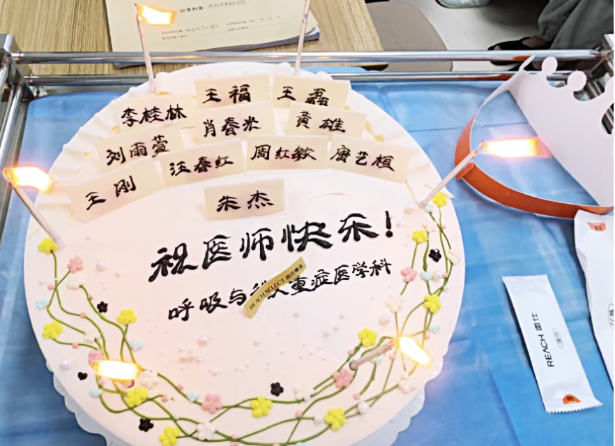 王福 王磊
李桂林 肖春米 黄雄
刘雨萱 汪春红 周红敏 詹艺桓
王刚 朱杰
祝医师快乐!
呼吸与 重症医学科
REACH 雷仕